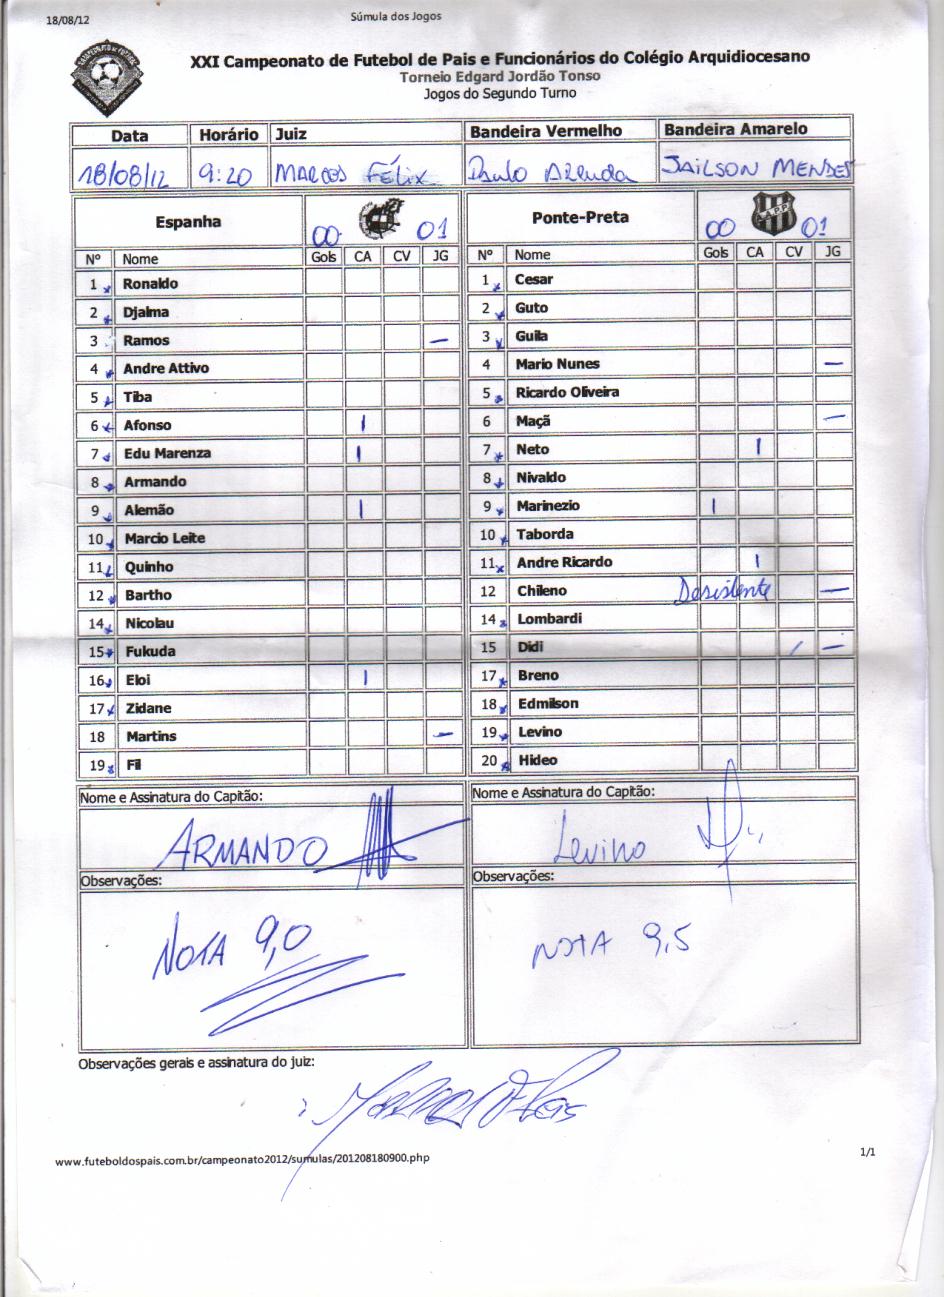 18/08/12 Súmula dos Jogos
XXI Campeonato de Futebol de Pais e Funcionários do Colégio Arquidiocesano
Torneio Edgard Jordão Tonso
Jogos do Segundo Turno
Data Horário Juiz Bandeira Vermelho Bandeira Amarelo
18/08/12 9:20 MARCOS FÉLIX Paulo Arruda JAILSON MENDES
Espanha 00 01 Ponte-Preta 00 01
Nº Nome Gols CA CV JG Nº Nome Gols CA CV JG
1 Ronaldo 1 Cesar
2 Djalma 2 Guto
3 Ramos — 3 Guila
4 Andre Attivo 4 Mario Nunes —
5 Tiba 5 Ricardo Oliveira
6 Afonso | 6 Maçã —
7 Edu Marenza | 7 Neto |
8 Armando 8 Nivaldo
9 Alemão | 9 Marinezio |
10 Marcio Leite 10 Taborda
11 Quinho 11 Andre Ricardo |
12 Bartho 12 Chileno Desistente —
14 Nicolau 14 Lombardi
15 Fukuda 15 Didi / —
16 Eloi | 17 Breno
17 Zidane 18 Edmilson
18 Martins — 19 Levino
19 Fil 20 Hideo
Nome e Assinatura do Capitão: Nome e Assinatura do Capitão:
ARMANDO Levino
Observações: Observações:
NOTA 9,0 NOTA 9,5
Observações gerais e assinatura do juiz:
www.futeboldospais.com.br/campeonato2012/sumulas/201208180900.php 1/1